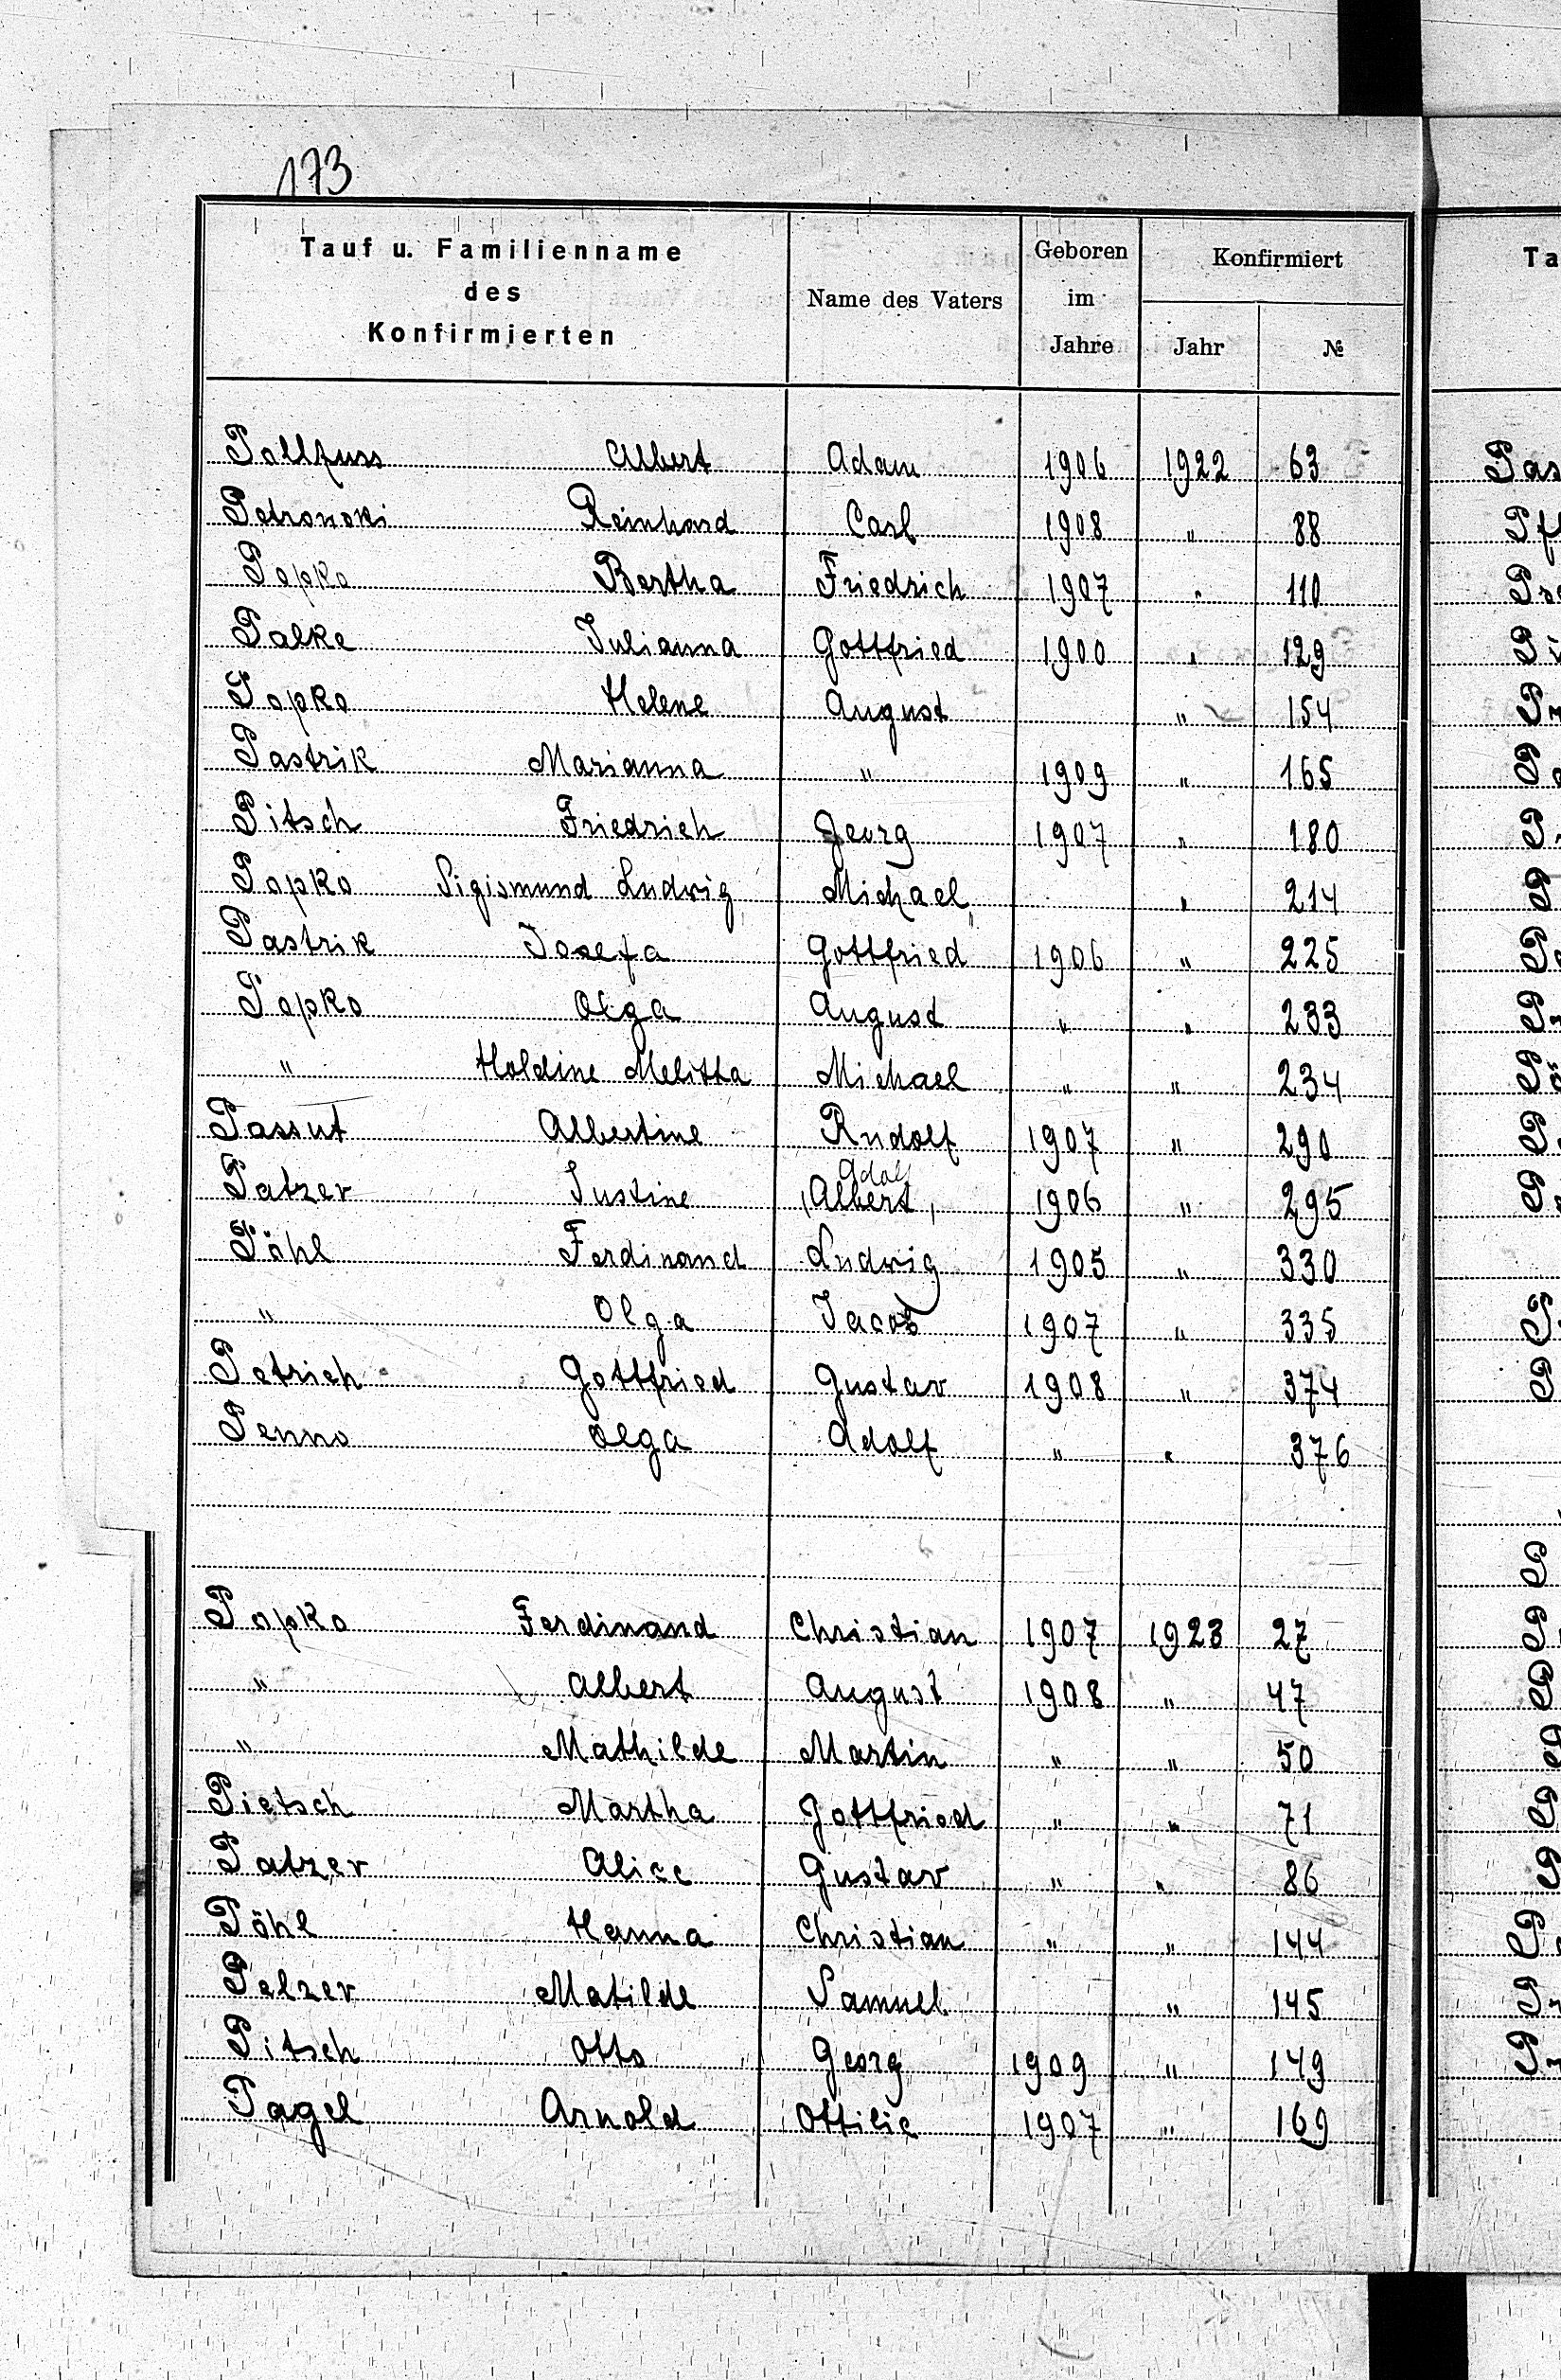 173
Tauf u. Familienname des Konfirmierten Name des Vaters Geboren im Jahre Konfirmiert Jahr №
Pollfuss Albert Adam 1906 1922 63
Petrowski Reinhard Carl 1908 " 88
Popko Bertha Friedrich 1907 " 110
Palke Julianna Gottfried 1900 " 129
Popko Helene August " 154
Pastrik Marianna " 1909 " 165
Pitsch Friedrich Georg 1907 " 180
Popko Sigismund Ludwig Michael " 214
Pastrik Josefa Gottfried 1906 " 225
Popko Olga August " " 233
" Holdine Melitta Michael " " 234
Passut Albertine Rudolf 1907 " 290
Adolf
Patzer Justine (Albert) 1906 " 295
Pöhl Ferdinand Ludwig 1905 " 330
" Olga Jacob 1907 " 335
Petrich Gottfried Gustav 1908 " 374
Penno Olga Adolf " " 376
Popko Ferdinand Christian 1907 1923 27
" Albert August 1908 " 47
" Mathilde Martin " " 50
Pietsch Martha Gottfried " " 71
Patzer Alice Gustav " " 86
Pöhl Hanna Christian " " 144
Pelzer Matilde Samuel " 145
Pitsch Otto Georg 1909 " 149
Pagel Arnold Ottilie 1907 " 169